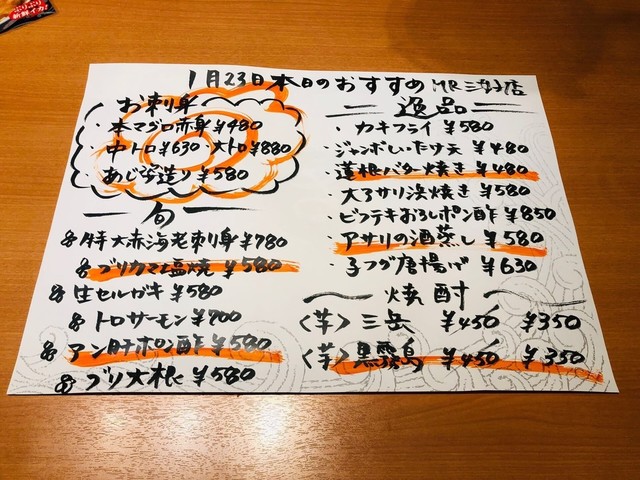 ぷりぷり
新鮮イカ!
1月23日本日のおすすめ
お刺身
・本マグロ赤身¥480
・中トロ¥630・大トロ¥880
あじ姿造り¥580
旬
特大赤海老刺身¥780
ブリカマ塩焼¥580
生セルガキ¥580
トロサーモン¥700
アン肝ポン酢¥580
ブリ大根¥580
逸品
・カキフライ¥580
・ジャンボしいたけ天¥480
・蓮根バター焼き¥480
・大アサリ浜焼き¥580
・ビフテキおろしポン酢¥850
・アサリの酒蒸し¥580
・子フグ唐揚げ¥630
〜焼酎〜
〈芋〉三岳 ¥450 ¥350
〈芋〉黒霧島 ¥450 ¥350